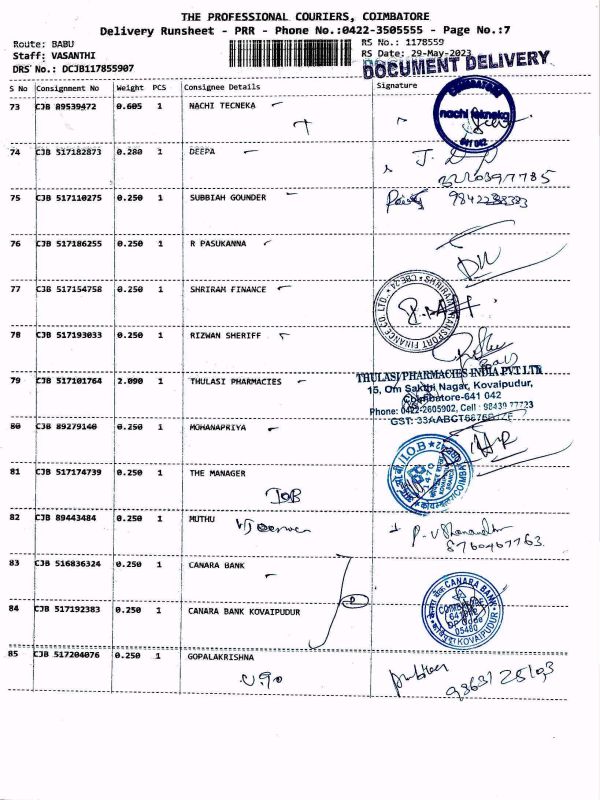 THE PROFESSIONAL COURIERS, COIMBATORE
Delivery Runsheet - PRR - Phone No.:0422-3505555 - Page No.:7
Route: BABU RS No.: 1178559
Staff: VASANTHI RS Date: 29-May-2023
DRS No.: DCJB117855907 DOCUMENT DELIVERY
S No Consignment No Weight PCS Consignee Details Signature
73 CJB 89539472 0.605 1 NACHI TECNEKA
COIMBATORE
nachi tekneka
641 042
74 CJB 517182873 0.280 1 DEEPA
75 CJB 517110275 0.250 1 SUBBIAH GOUNDER
76 CJB 517186255 0.250 1 R PASUKANNA
77 CJB 517154758 0.250 1 SHRIRAM FINANCE
SHRIRAM TRANSPORT FINANCE CO. LTD. CBE-24
78 CJB 517193033 0.250 1 RIZWAN SHERIFF
79 CJB 517101764 2.090 1 THULASI PHARMACIES
THULASI PHARMACIES INDIA PVT LTD
15, Om Sakthi Nagar, Kovaipudur,
Coimbatore-641 042
Phone: 0422-2605902, Cell: 98439 77723
80 CJB 89279140 0.250 1 MOHANAPRIYA
81 CJB 517174739 0.250 1 THE MANAGER
IOB
I.O.B
1470
82 CJB 89443484 0.250 1 MUTHU
8760467763
83 CJB 516836324 0.250 1 CANARA BANK
84 CJB 517192383 0.250 1 CANARA BANK KOVAIPUDUR
केनरा बैंक CANARA BANK
COIMBATORE
05480
KOVAIPUDUR
85 CJB 517204076 0.250 1 GOPALAKRISHNA